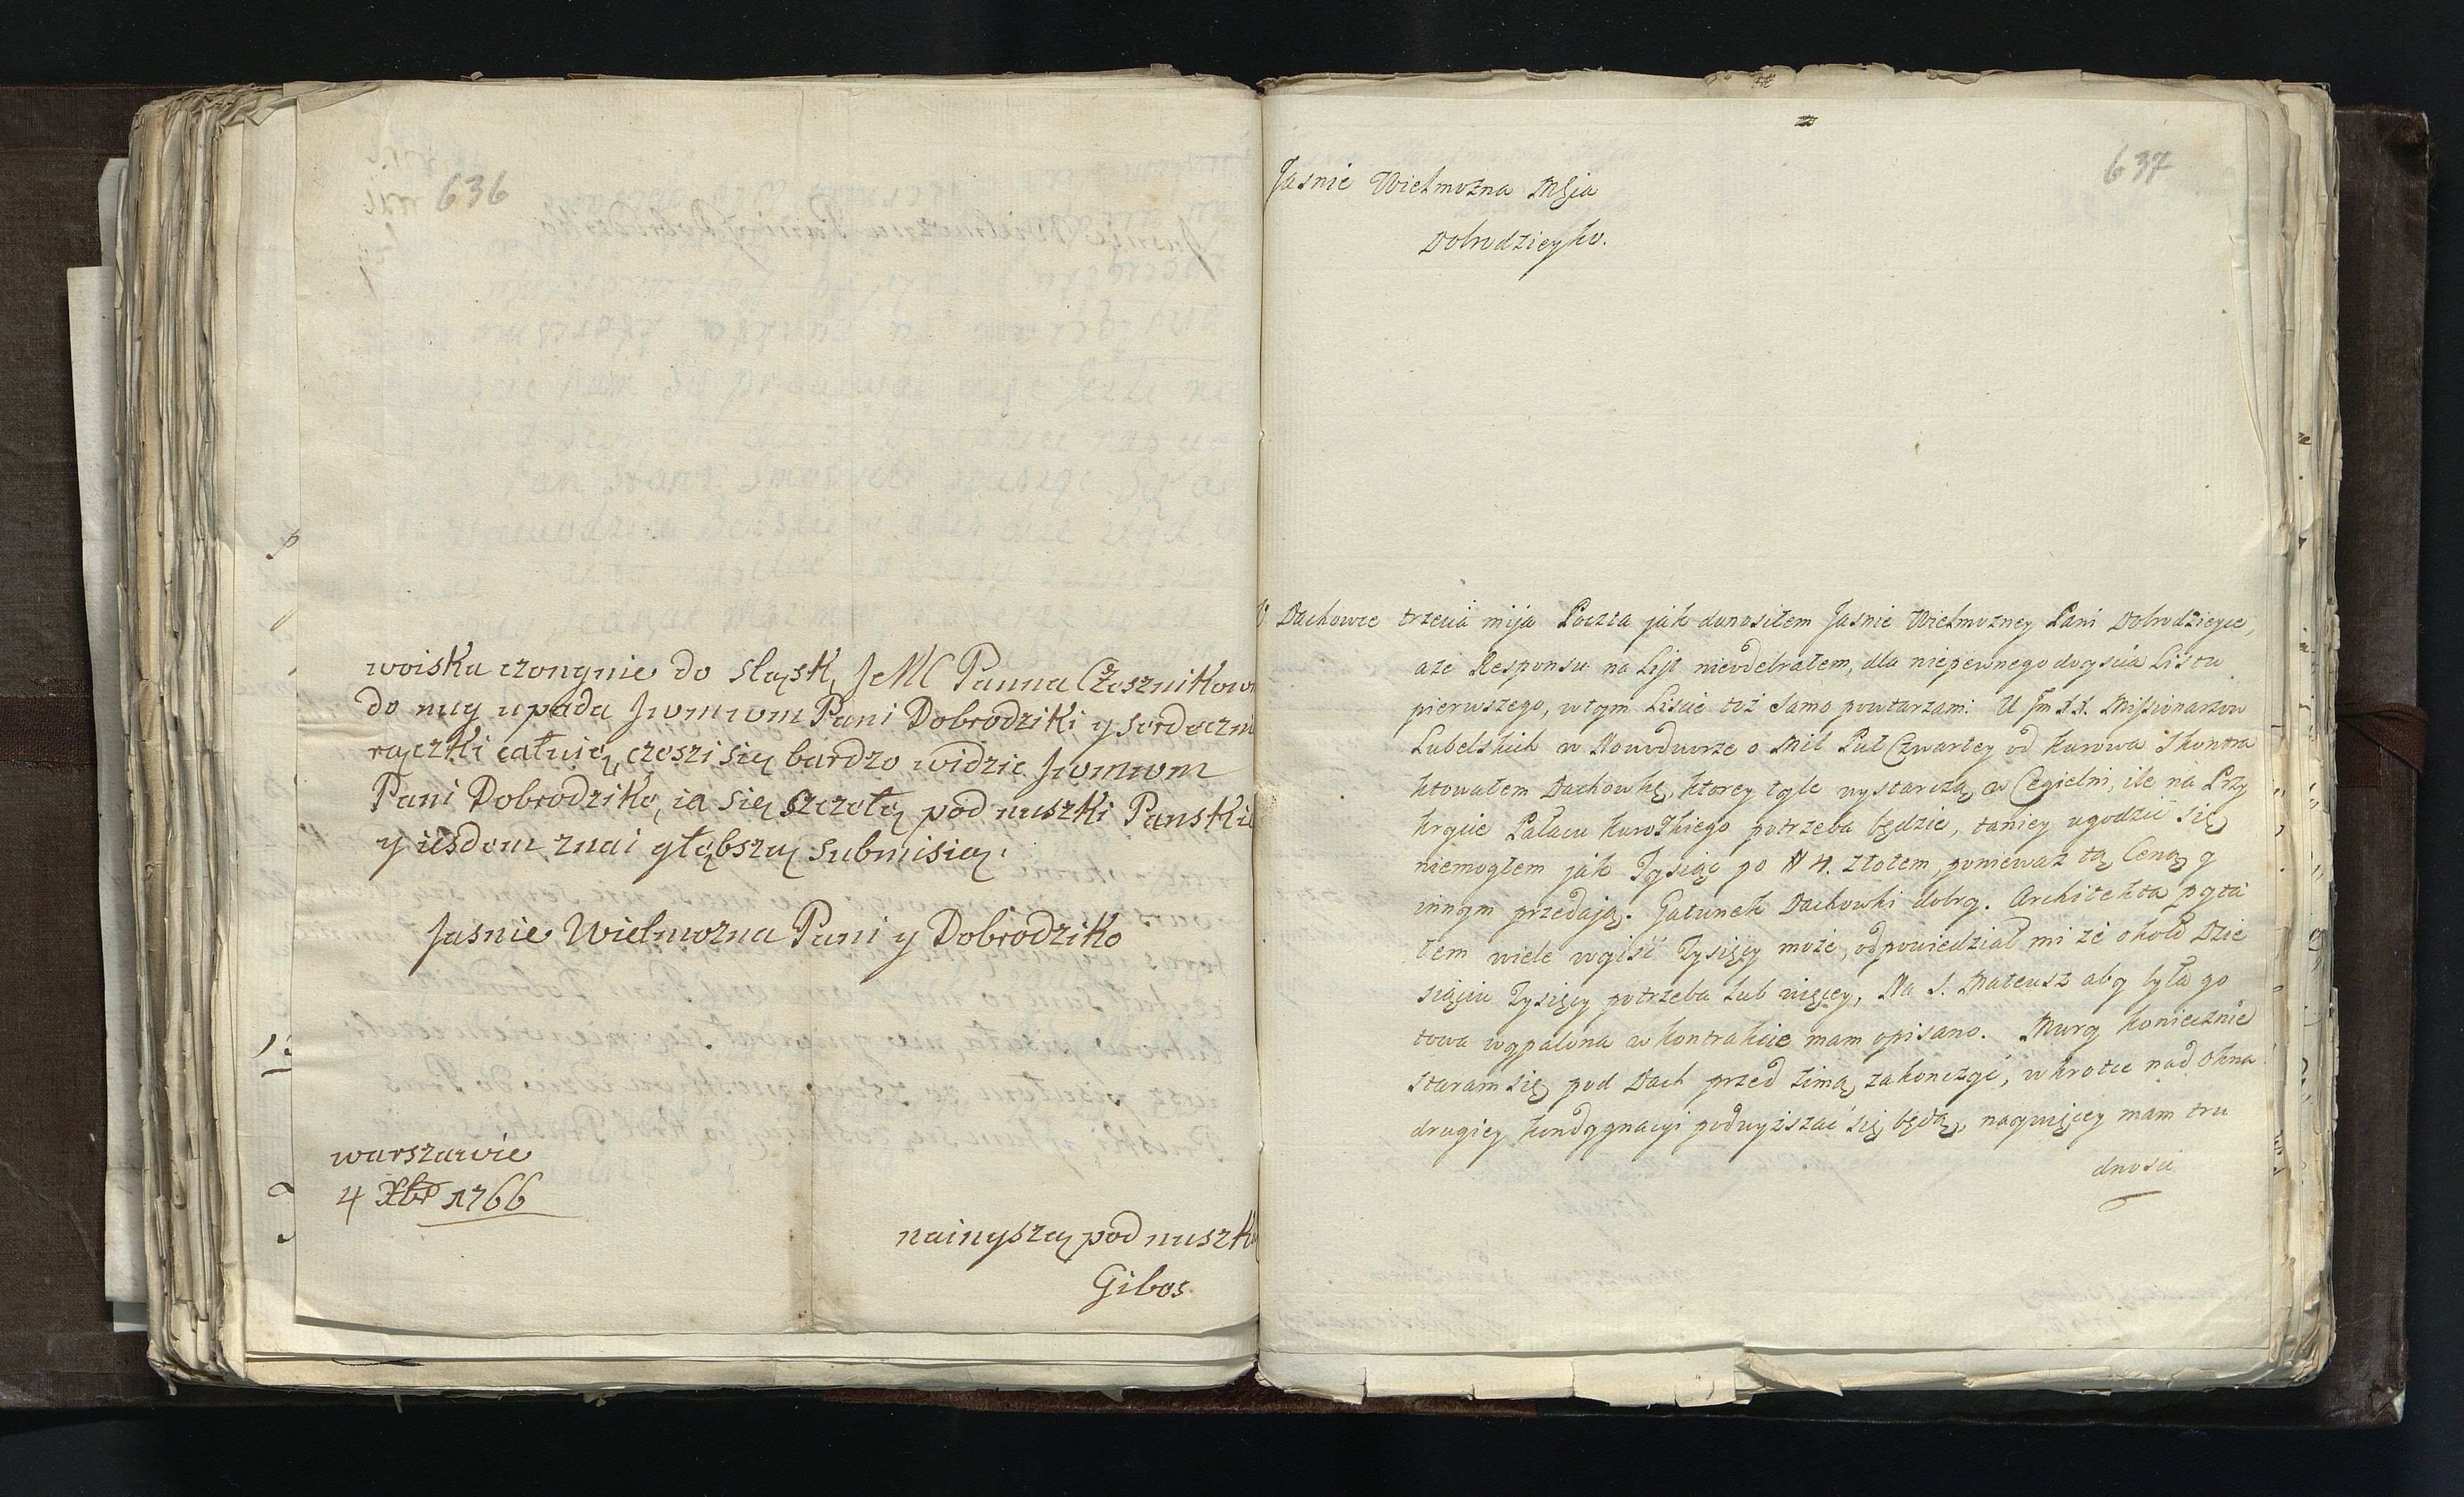 636
woiska czongnie do sląsk, JeMC Panna Czesznikow
do nug upada Jwmwm Pani Dobrodziki y serdeczn
rączki całuię, czeszi się bardzo widzic Jwmwm
Pani Dobrodziko, ia się szczełę pod nuszki Panski
y iesdem znai głąbszą submisią.
Jasnie Wielmozna Pani y Dobrodziko
warszawie
4 Xbr 1766
nainyszą pod nuszk
Gibes
637
Jasnie Wielmozna Mśia
Dobrodzieyko.
O Dachowce
trzecia mija Poczta jak donosiłem Jasnie Wielmozney Pani Dobrodzieyce,
aże Responsu na List nieodebrałem, dla niepewnego dogscia Listu
pierwszego, w tym Liscie toż samo powtarzam: U Jm XX. Missionarzow
Lubelskich w Nowodworze o Mil Puł Czwartey od Kurowa Skontra
ktowałem Dachowkę, ktorey tyle wystarczą w Cegielni, ile na Przy
krycie Pałacu Kurowskiego potrzeba będzie, taniey ugodzić się
niemogłem jak Tysiąc po N 4. Złotem, poniewaz tą Ceną y
innym przedają. Gatunek Dachowki dobry. Architekta pyta
łem wiele wyiść Tysięcy może, odpowiedział mi że około Dzie
sięciu Tysięcy potrzeba lub więcey, Na S. Mateusz aby była go
towa wypalona w kontrakcie mam opisano. Mury koniecznie
staram się pod Dach przed zimą zakończyć, w krotce nad okna
drugiey kondygnacyi podwyższać się będą, naywięcey mam tru
dnosci